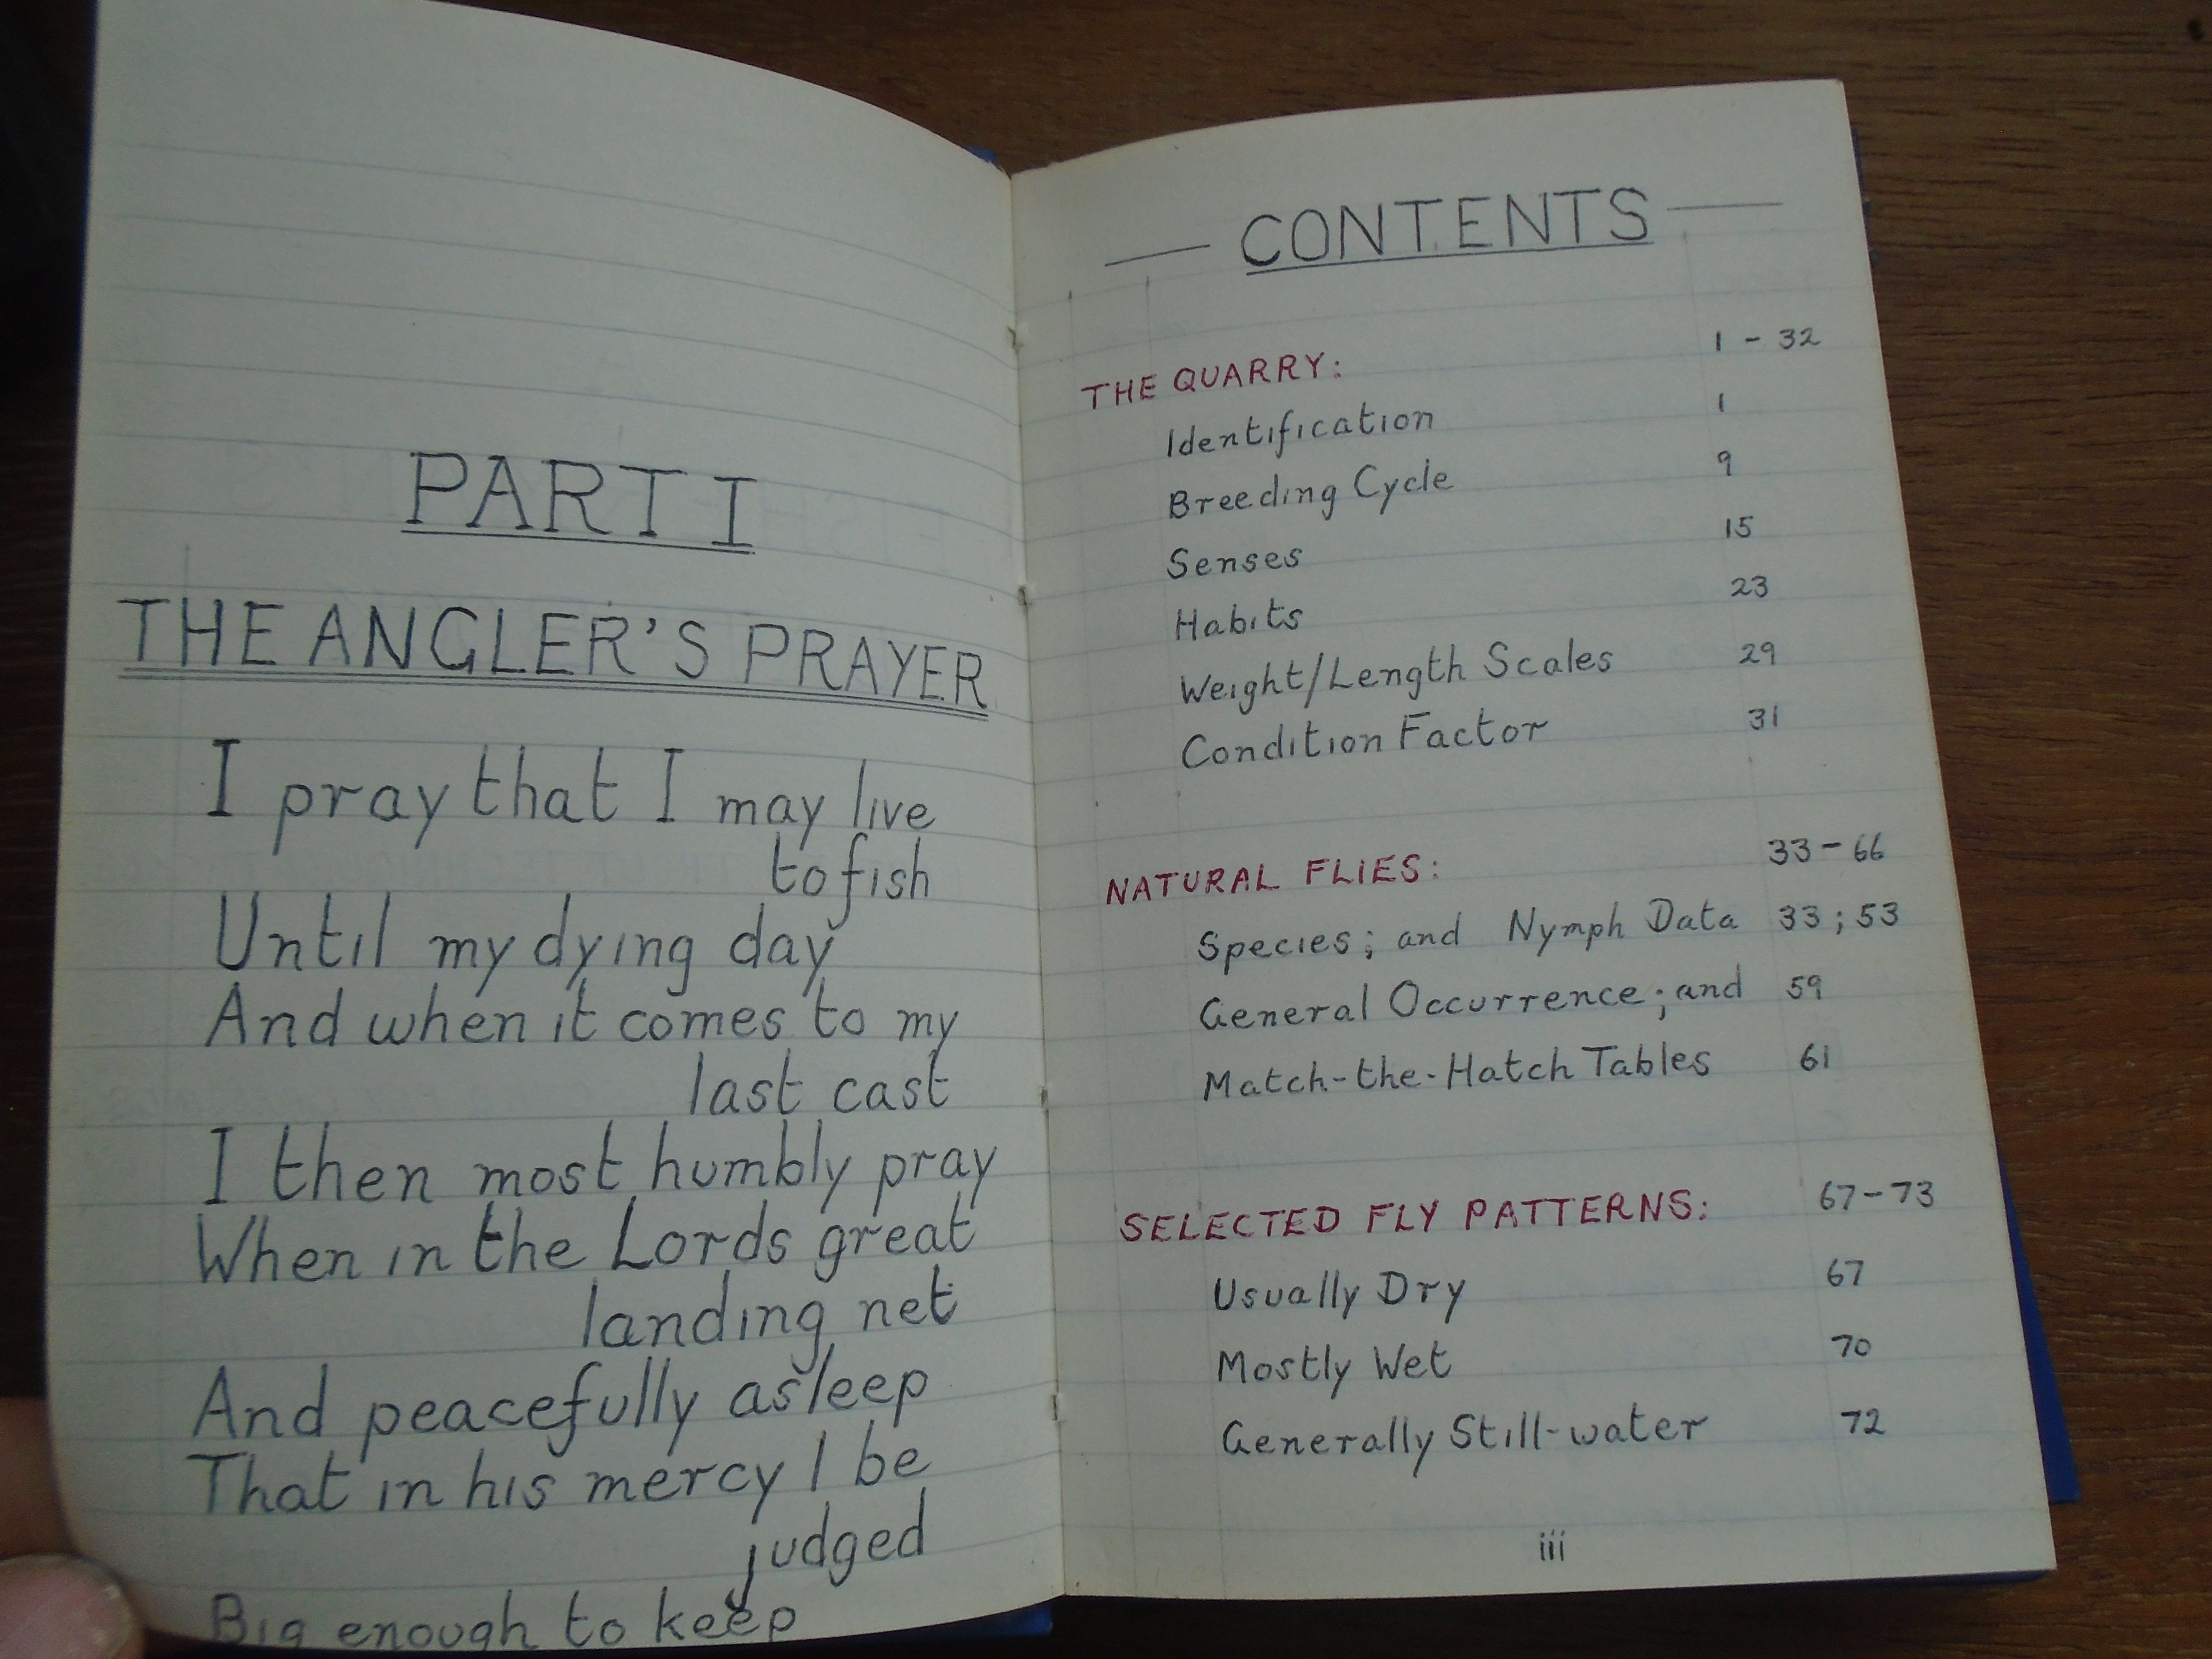 PART I
THE ANGLER'S PRAYER
I pray that I may live
to fish
Until my dying day
And when it comes to my
last cast
I then most humbly pray
When in the Lords great
landing net
And peacefully asleep
That in his mercy I be
judged
Big enough to keep
CONTENTS
THE QUARRY: 1 - 32
Identification 1
Breeding Cycle 9
Senses 15
Habits 23
Weight/Length Scales 29
Condition Factor 31
NATURAL FLIES: 33-66
Species; and Nymph Data 33; 53
General Occurrence; and 59
Match-the-Hatch Tables 61
SELECTED FLY PATTERNS: 67-73
Usually Dry 67
Mostly Wet 70
Generally Still-water 72
iii